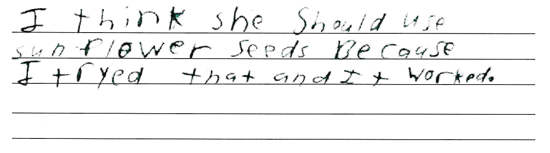 I think she Should use
sunflower Seeds Because
I tryed that and It worked.